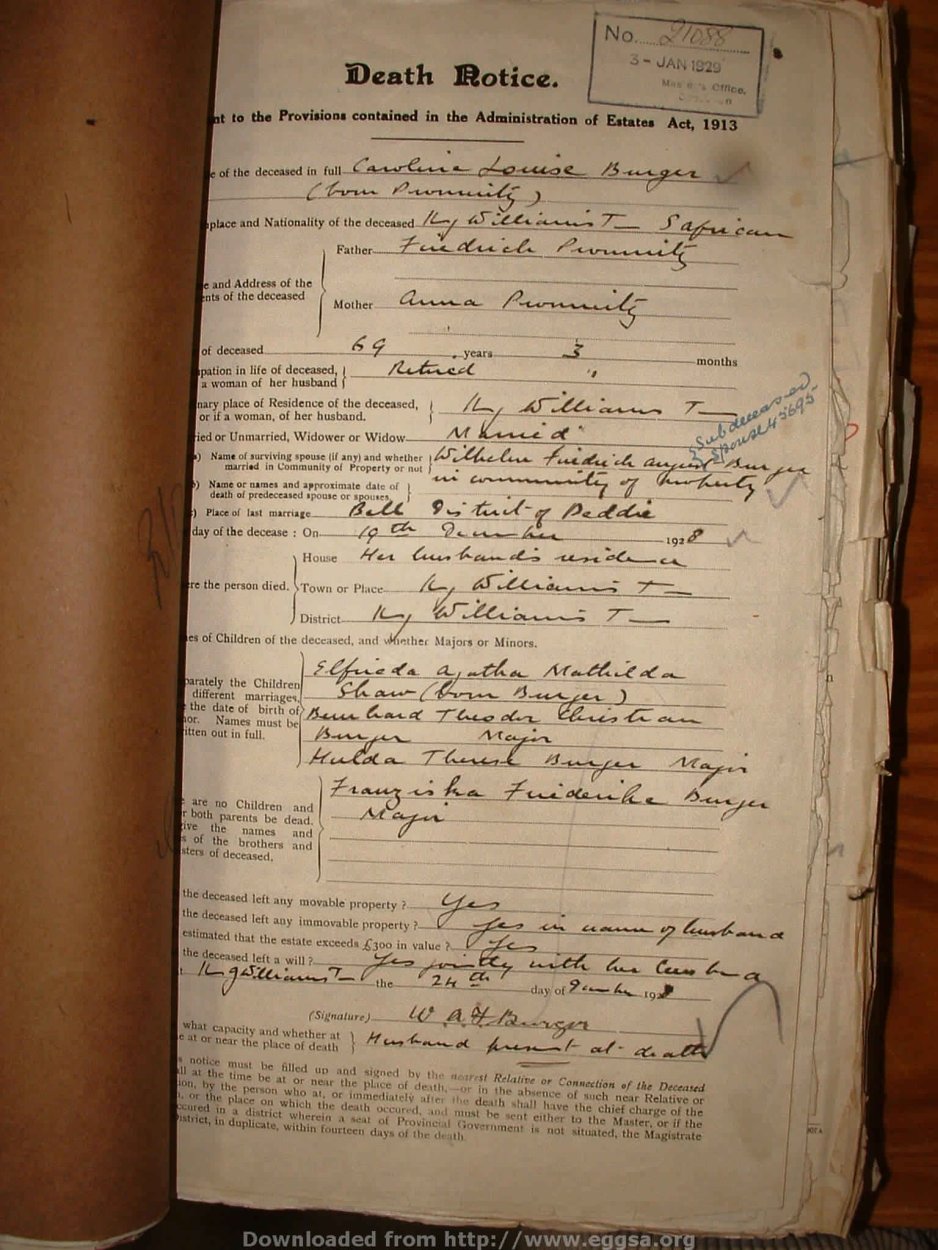 No. 21088
3 - JAN 1929
Office,
Death Notice.
nt to the Provisions contained in the Administration of Estates Act, 1913
e of the deceased in full Caroline Louise Burger
(born Promnitz)
place and Nationality of the deceased Kg Williams T S African
Father Friedrich Promnitz
e and Address of the
ents of the deceased
Mother Anna Promnitz
of deceased 69 years 3 months
pation in life of deceased, Retired "
a woman of her husband
nary place of Residence of the deceased, Kg Williams T
or if a woman, of her husband.
ried or Unmarried, Widower or Widow Married
Subdeceased
Spouse 45695
) Name of surviving spouse (if any) and whether Wilhelm Friedrich August Burger
married in Community of Property or not in community of property
) Name or names and approximate date of
death of predeceased spouse or spouses.
) Place of last marriage Bell District of Peddie
day of the decease : On 19th December 1928
House Her husband's residence
re the person died. Town or Place Kg Williams T
District Kg Williams T
es of Children of the deceased, and whether Majors or Minors.
Elfrieda Agatha Mathilda
parately the Children Shaw (born Burger)
different marriages,
the date of birth of Bernhard Theodor Christian
nor. Names must be Burger Major
itten out in full.
Hulda Therese Burger Major
Franziska Friederike Burger
Major
are no Children and
r both parents be dead.
give the names and
s of the brothers and
sters of deceased.
the deceased left any movable property ? Yes
the deceased left any immovable property ? Yes in name of husband
estimated that the estate exceeds £300 in value ? Yes
the deceased left a will ? Yes jointly with her husband
t Kg Williams T the 24th day of December 1928
(Signature) W. A. F. Burger
what capacity and whether at Husband present at death
e at or near the place of death
s notice must be filled up and signed by the nearest Relative or Connection of the Deceased
all at the time be at or near the place of death,—or in the absence of such near Relative or
ion, by the person who at, or immediately after the death shall have the chief charge of the
, or the place on which the death occured, and must be sent either to the Master, or if the
ccured in a district wherein a seat of Provincial Government is not situated, the Magistrate
istrict, in duplicate, within fourteen days of the death.
Downloaded from http://www.eggsa.org